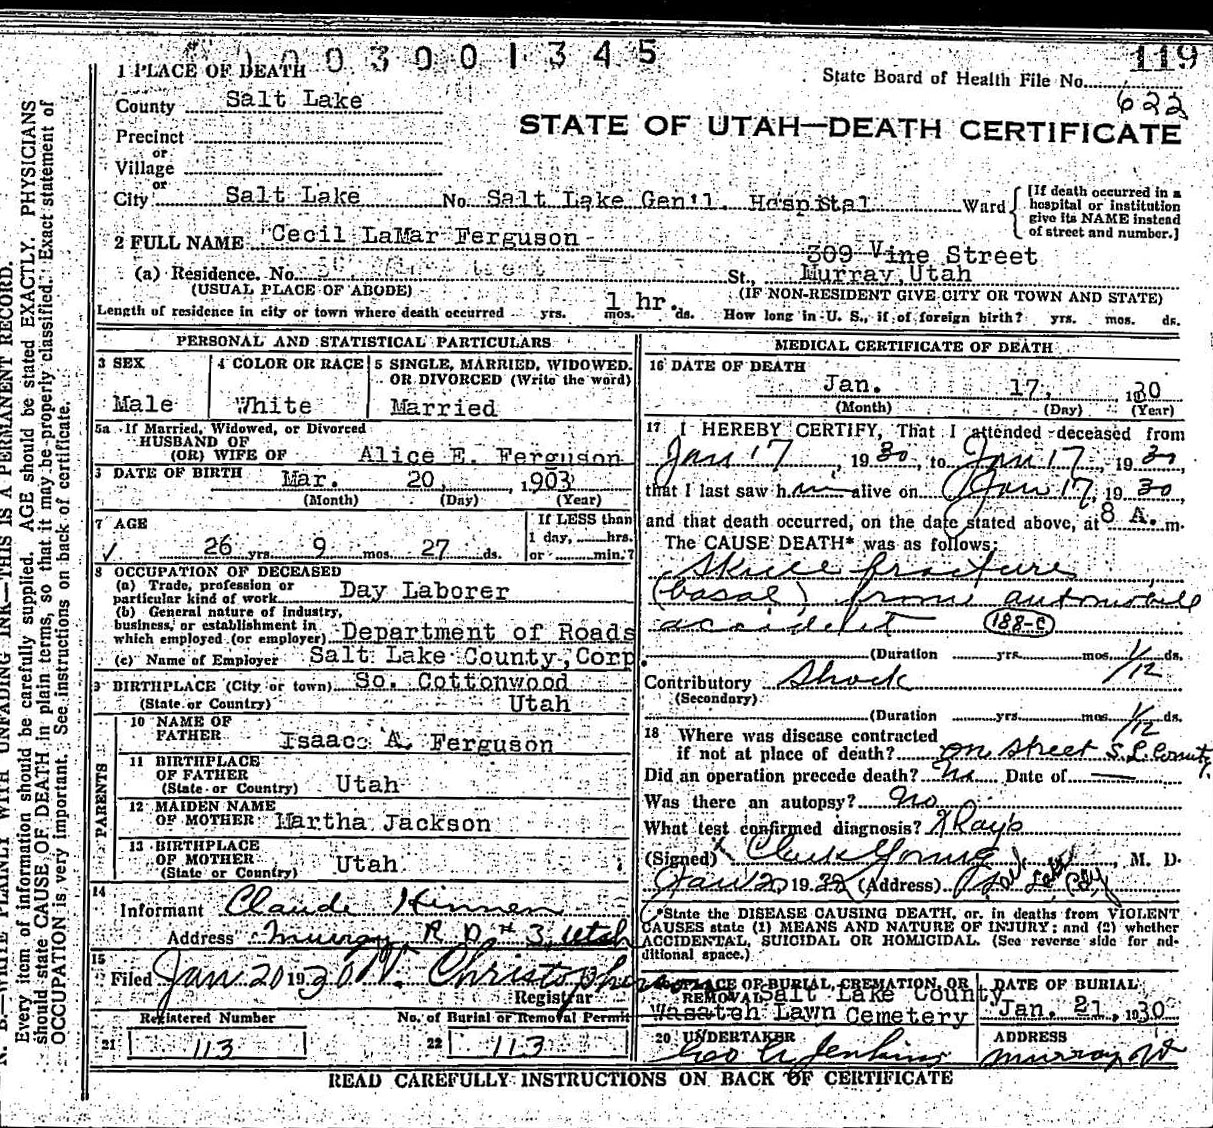 003001345
119
1 PLACE OF DEATH
State Board of Health File No.
622
County Salt Lake
STATE OF UTAH—DEATH CERTIFICATE
Precinct
or
Village
or
City Salt Lake No. Salt Lake Gen'l. Hospital Ward
[If death occurred in a hospital or institution give its NAME instead of street and number.]
2 FULL NAME Cecil LaMar Ferguson
309 Vine Street
(a) Residence. No. St., Murray, Utah
(USUAL PLACE OF ABODE) (IF NON-RESIDENT GIVE CITY OR TOWN AND STATE)
1 hr.
Length of residence in city or town where death occurred yrs. mos. ds. How long in U. S., if of foreign birth? yrs. mos. ds.
PERSONAL AND STATISTICAL PARTICULARS
3 SEX
Male
4 COLOR OR RACE
White
5 SINGLE, MARRIED, WIDOWED, OR DIVORCED (Write the word)
Married
5a If Married, Widowed, or Divorced
HUSBAND OF
(OR) WIFE OF Alice E. Ferguson
DATE OF BIRTH Mar. 20, 1903
(Month) (Day) (Year)
7 AGE
26 yrs. 9 mos. 27 ds.
If LESS than
1 day, hrs.
or min.?
8 OCCUPATION OF DECEASED
(a) Trade, profession or
particular kind of work Day Laborer
(b) General nature of industry,
business, or establishment in
which employed (or employer) Department of Roads
(c) Name of Employer Salt Lake County, Corp.
9 BIRTHPLACE (City or town) So. Cottonwood
(State or Country) Utah
PARENTS
10 NAME OF
FATHER Isaac A. Ferguson
11 BIRTHPLACE
OF FATHER
(State or Country) Utah
12 MAIDEN NAME
OF MOTHER Martha Jackson
13 BIRTHPLACE
OF MOTHER
(State or Country) Utah
14
Informant Claude Hinnen
Address Murray R D # 3, Utah
15
Filed Jan 20 1930 Christopherson
Registrar
Registered Number No. of Burial or Removal Permit
21 113 22 113
MEDICAL CERTIFICATE OF DEATH
16 DATE OF DEATH
Jan. 17, 1930
(Month) (Day) (Year)
17 I HEREBY CERTIFY, That I attended deceased from
Jan 17, 1930, to Jan 17, 1930
that I last saw him alive on Jan 17, 1930,
and that death occurred, on the date stated above, at 8 A. m.
The CAUSE DEATH* was as follows:
Skull fracture
(basal) from automobile
accident 188-c
(Duration yrs. mos. 1/12 ds.
Contributory Shock
(Secondary)
(Duration yrs. mos. 1/12 ds.
18 Where was disease contracted
if not at place of death? on street S.L. County
Did an operation precede death? No Date of —
Was there an autopsy? No
What test confirmed diagnosis? X Rays
(Signed) Clark Young, M. D.
Jan 20 19 (Address) Salt Lake City
*State the DISEASE CAUSING DEATH, or, in deaths from VIOLENT
CAUSES state (1) MEANS AND NATURE OF INJURY; and (2) whether
ACCIDENTAL, SUICIDAL OR HOMICIDAL. (See reverse side for additional space.)
PLACE OF BURIAL, CREMATION, OR
REMOVAL Salt Lake County
Wasatch Lawn Cemetery
DATE OF BURIAL
Jan. 21, 1930
20 UNDERTAKER
Geo A Jenkins
ADDRESS
Murray Ut
READ CAREFULLY INSTRUCTIONS ON BACK OF CERTIFICATE
N. B.—WRITE PLAINLY WITH UNFADING INK—THIS IS A PERMANENT RECORD.
Every item of information should be carefully supplied. AGE should be stated EXACTLY. PHYSICIANS
should state CAUSE OF DEATH in plain terms, so that it may be properly classified. Exact statement of
OCCUPATION is very important. See instructions on back of certificate.